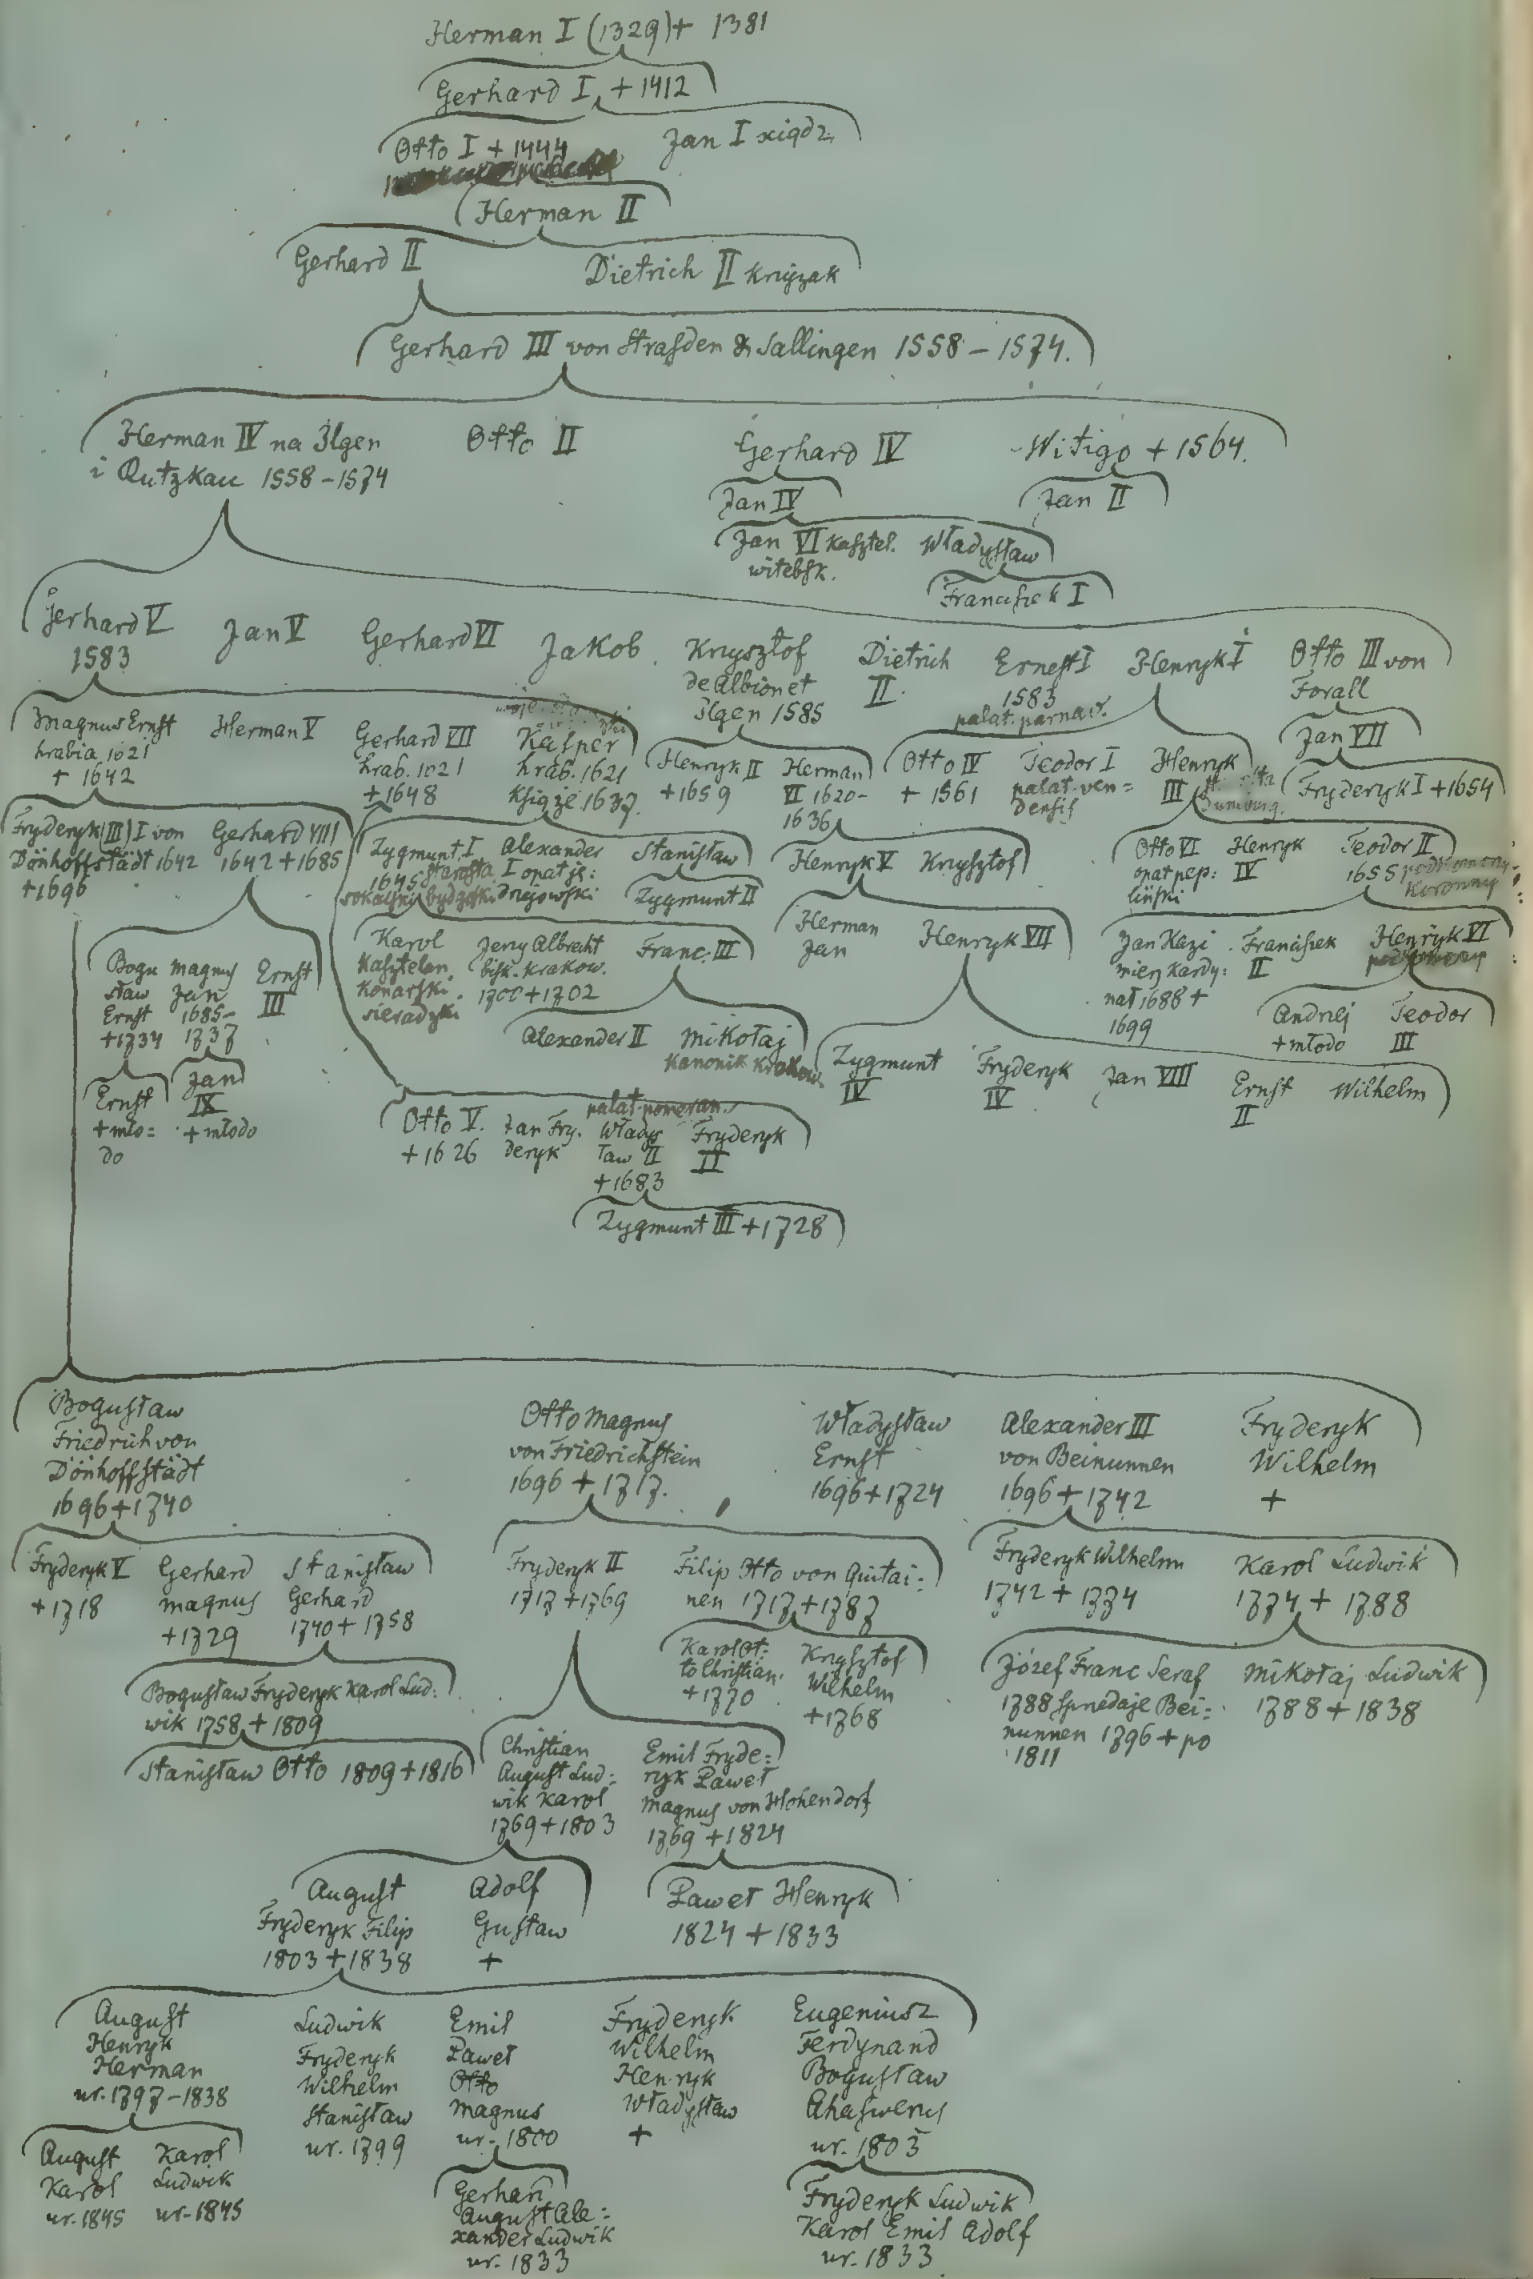 Herman I (1329)+ 1381
Gerhard I + 1412
Otto I + 1444
Jan I xiądz
Herman II
Gerhard II
Dietrich II Krzyżak
Gerhard III von Straſden & Sallingen 1558 – 1574.
Herman IV na Ilgen
i Rutzkau 1558–1574
Otto II
Gerhard IV
Witigo + 1564.
Jan IV
Jan II
Jan VI Kaſztel.
witebſk.
Władyſław
Franciſzek I
Gerhard V
1583
Jan V
Gerhard VI
Jakob
Krzysztof
de Albion et
Ilgen 1585
Dietrich
II
Erneſt I
1583
palat. parnaw.
Henryk I
Otto III von
Forall
Magnus Ernſt
hrabia 1621
+ 1642
Herman V
Gerhard VII
hrab. 1621
+ 1648
Kaſper
hrab. 1621
Kſiążę 1637.
Henryk II
+1659
Herman
VI 1620–
1636
Otto IV
+ 1561
Teodor I
palat. ven=
denſiſ
Henryk
III
Jan VII
Fryderyk I +1654
Fryderyk (III) I von
Dönhoffſtädt 1642
+1696
Gerhard VIII
1642 +1685
Zygmunt I
1645 Staroſta
sokalſki bydgſki
Alexander
I opat ję:
drzejowſki
Staniſław
Zygmunt II
Henryk V
Krzyſztof
Otto VI
opat pep:
lińſki
Henryk
IV
Teodor II
1655 podkomorzy
Koronny
Bogu
sław
Ernſt
+1734
Magnuſ
Jan
1685–
1737
Ernſt
III
Karol
Kaſztelan
Konarſki
sieradzki
Jerzy Albrecht
biſk. krakow.
1700 +1702
Franc. III
Herman
Jan
Henryk VII
Jan Kazi
mierz Kardy:
nał 1688 +
1699
Franciſzek
II
Henryk VI
Alexander II
Mikołaj
Kanonik Krakow.
Andrzej
+młodo
Teodor
III
Ernſt
+mło=
do
Jan
IX
+młodo
Zygmunt
IV
Fryderyk
IV
Jan VIII
Ernſt
II
Wilhelm
Otto V.
+1626
Jan Fry.
deryk
palat. pomeran.
Włady
ſław II
+1683
Fryderyk
II
Zygmunt III +1728
Boguſław
Friedrich von
Dönhoffſtädt
1696+1740
Otto Magnuſ
von Friedrichſtein
1696 + 1717.
Władyſław
Ernſt
1696+1724
Alexander III
von Beinunnen
1696+1742
Fryderyk
Wilhelm
+
Fryderyk V
+1718
Gerhard
Magnuſ
+1729
Staniſław
Gerhard
1740+1758
Fryderyk II
1717+1769
Filip Otto von Quitai:
nen 1717+1787
Fryderyk Wilhelm
1742 + 1774
Karol Ludwik
1774 + 1788
Boguſław Fryderyk Karol Lud:
wik 1758 + 1809
Karol Ot:
to Chriſtian.
+1770
Krzyſztof
Wilhelm
+1768
Józef Franc Seraf
1788 ſprzedaje Bei:
nunnen 1796 + po
1811
Mikołaj Ludwik
1788 + 1838
Staniſław Otto 1809+1816
Chriſtian
Auguſt Lud:
wik Karol
1769+1803
Emil Fryde:
ryk Paweł
Magnuſ von Hohendorf
1769 +1824
Auguſt
Fryderyk Filip
1803+1838
Adolf
Guſtaw
+
Paweł Henryk
1824 + 1833
Auguſt
Henryk
Herman
ur. 1797–1838
Ludwik
Fryderyk
Wilhelm
Staniſław
ur. 1799
Emil
Paweł
Otto
Magnus
ur. 1800
Fryderyk
Wilhelm
Henryk
Władyſław
+
Eugeniusz
Ferdynand
Boguſław
Ahaſweruſ
ur. 1803
Auguſt
Karol
ur. 1845
Karol
Ludwik
ur. 1845
Gerhard
Auguſt Ale:
xander Ludwik
ur. 1833
Fryderyk Ludwik
Karol Emil Adolf
ur. 1833